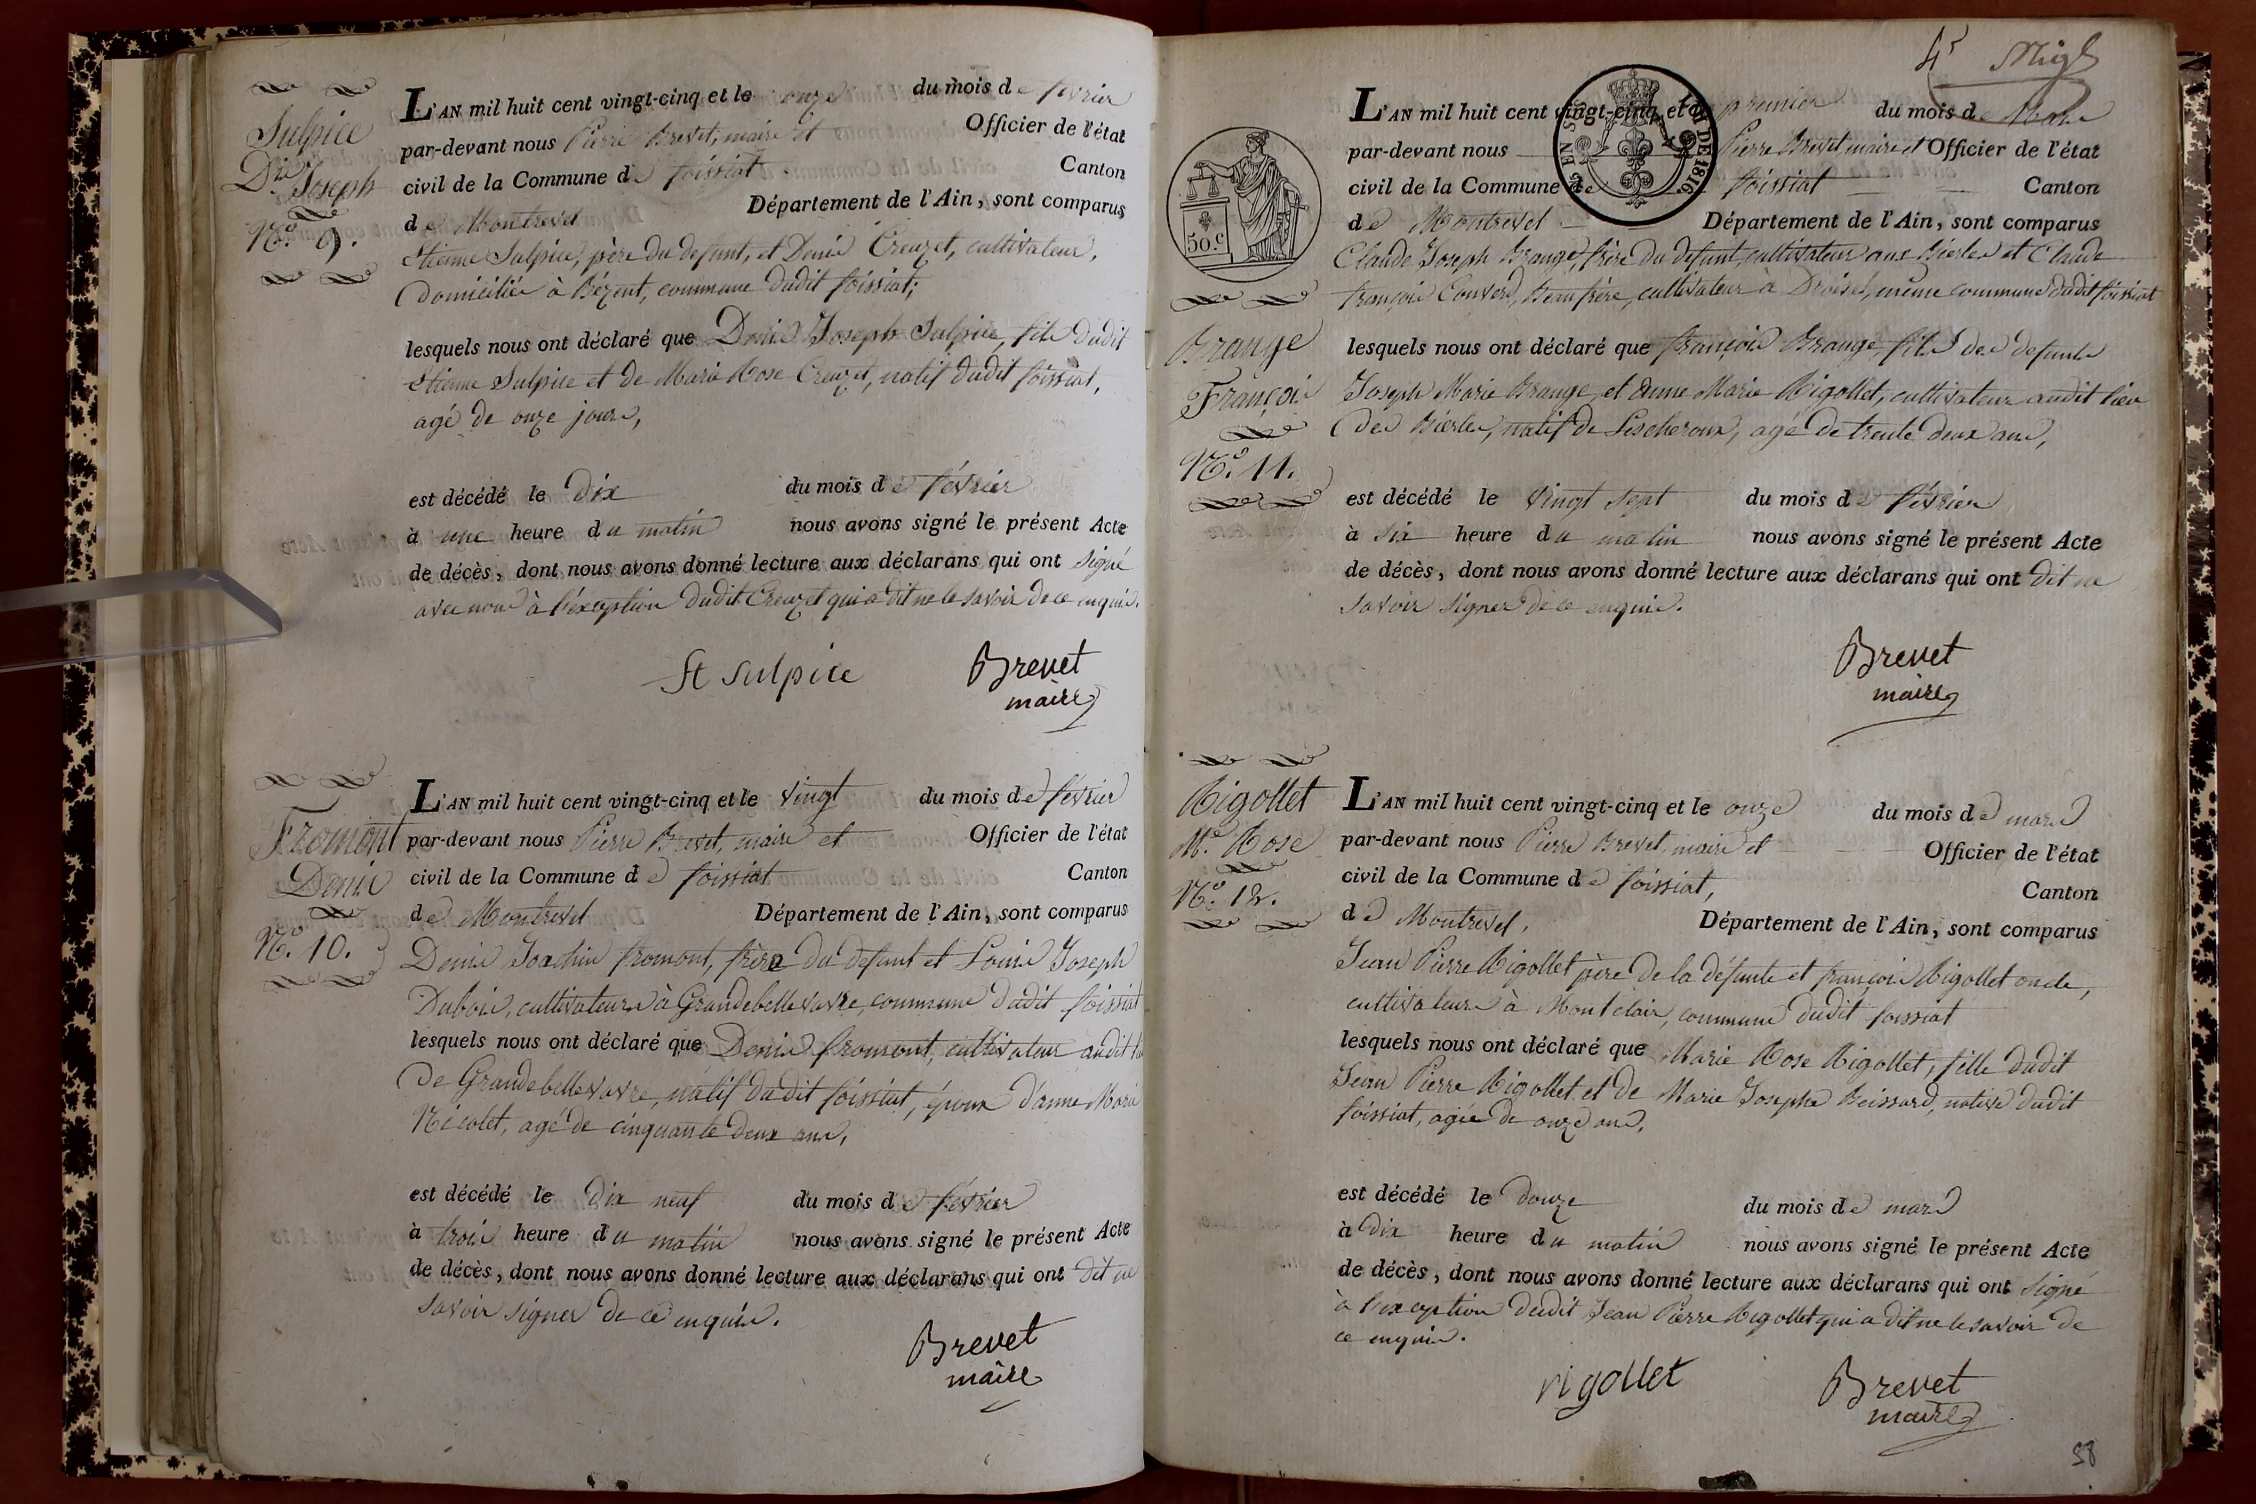 Sulpice
Dis Joseph
N.º 9.
L'AN mil huit cent vingt-cinq et le onze du mois de février
par-devant nous Pierre Brevet, maire et Officier de l'état
civil de la Commune de foissiat Canton
de Montrevel Département de l'Ain, sont comparus
Etienne Sulpice, père du defunt, et Denis Creuzet, cultivateurs,
Domiciliés à Bézent, commune dudit foissiat;
lesquels nous ont déclaré que Denis Joseph Sulpice, fils dudit
Etienne Sulpice et de Marie Rose Creuzet, natif dudit foissiat,
agé de onze jours,
est décédé le Dix du mois de février
à une heure du matin nous avons signé le présent Acte
de décès, dont nous avons donné lecture aux déclarans qui ont signé
avec nous à l'éxception dudit Creuzet qui a dit ne le savoir de ce enquis.
St sulpice Brevet
maire
Fromont
Denis
N.º 10.
L'AN mil huit cent vingt-cinq et le vingt du mois de février
par-devant nous Pierre Brevet, maire et Officier de l'état
civil de la Commune de foissiat Canton
de Montrevel Département de l'Ain, sont comparus
Denis Joachin fromont, frère du defunt et Louis Joseph
Dubois, cultivateurs à Grandebellevavre, commune dudit foissiat
lesquels nous ont déclaré que Denis fromont, cultivateur audit lieu
De Grandebellevavre, natif dudit foissiat, époux d'anne Marie
Nicolet, agé de cinquante deux ans,
est décédé le dix neuf du mois de février
à trois heure du matin nous avons signé le présent Acte
de décès, dont nous avons donné lecture aux déclarans qui ont dit ne
savoir signer de ce enquis.
Brevet
maire
50.c
EN SUS
LOI DE 1816
Brange
François
N.º 11.
L'AN mil huit cent vingt-cinq et le premier du mois de Mars
par-devant nous Pierre Brevet maire et Officier de l'état
civil de la Commune de foissiat Canton
de Montrevel Département de l'Ain, sont comparus
Claude Joseph Brange, frère du defunt, cultivateur aux Bierles et Claude
françois Convert, Beaufrère, cultivateur à Droisel, même commune dudit foissiat
lesquels nous ont déclaré que françois Brange, fils des defunts
Joseph Marie Brange, et anne Marie Rigollet, cultivateur audit lieu
Des Bierles, natif de Lescheroux, agé de trente deux ans,
est décédé le vingt sept du mois de février
à six heure du matin nous avons signé le présent Acte
de décès, dont nous avons donné lecture aux déclarans qui ont dit ne
savoir signer de ce enquis.
Brevet
maire
Rigollet
M.e Rose
N.º 12.
L'AN mil huit cent vingt-cinq et le onze du mois de mars
par-devant nous Pierre Brevet, maire et Officier de l'état
civil de la Commune de foissiat, Canton
de Montrevel, Département de l'Ain, sont comparus
Jean Pierre Rigollet père de la défunte et françois Rigollet oncle,
cultivateurs à Montclair, commune dudit foissiat
lesquels nous ont déclaré que Marie Rose Rigollet, fille dudit
Jean Pierre Rigollet et de Marie Josephe Beissard, native dudit
foissiat, agée de onze ans,
est décédé le Douze du mois de mars
à Dix heure du matin nous avons signé le présent Acte
de décès, dont nous avons donné lecture aux déclarans qui ont signé
à l'exception dudit Jean Pierre Rigollet qui a dit ne le savoir de
ce enquis.
rigollet Brevet
maire
58